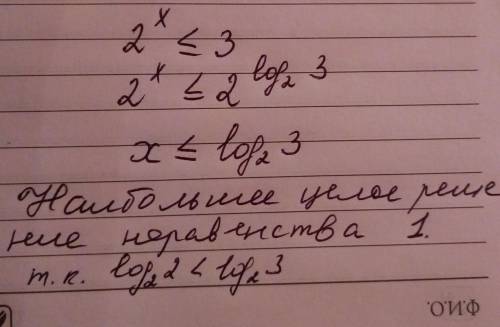 2^x ≤ 3
2^x ≤ 2^log₂ 3
x ≤ log₂ 3
Наибольшее целое реше
ние неравенства 1.
т.к. log₂ 2 < log₂ 3
Ф.И.О.